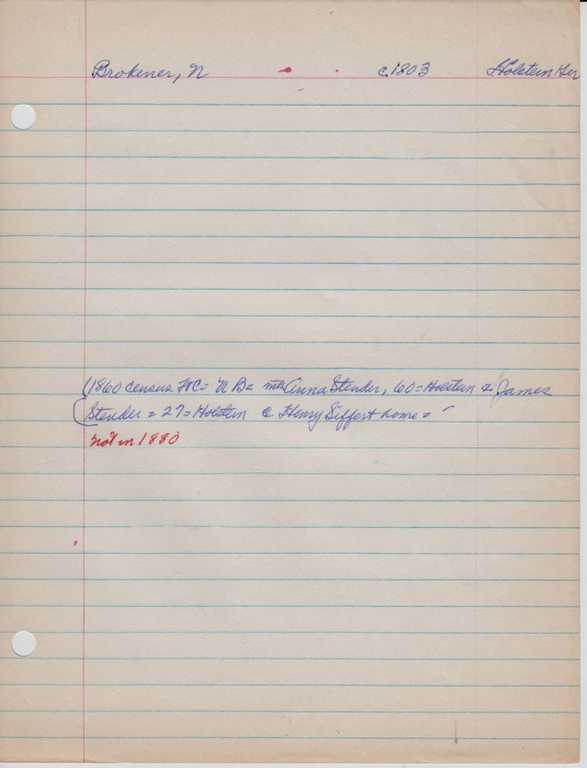 Brokener, N c.1803 Holstein Ger
1860 census HC= N B= mrs Anna Stender, 60=Holstein & James
Stender = 27=Holstein @ Henry Siffert home =
not in 1880